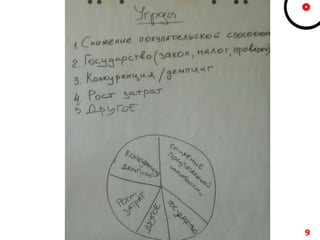 Угрозы
1. Снижение покупательской способнос
2. Государство (закон, налог, проверки)
3. Конкуренция / демпинг
4. Рост затрат
5 Другое
Конкуренция
демпинг
Снижение
покупательской
способности
Рост
затрат
Другое
Государство
9